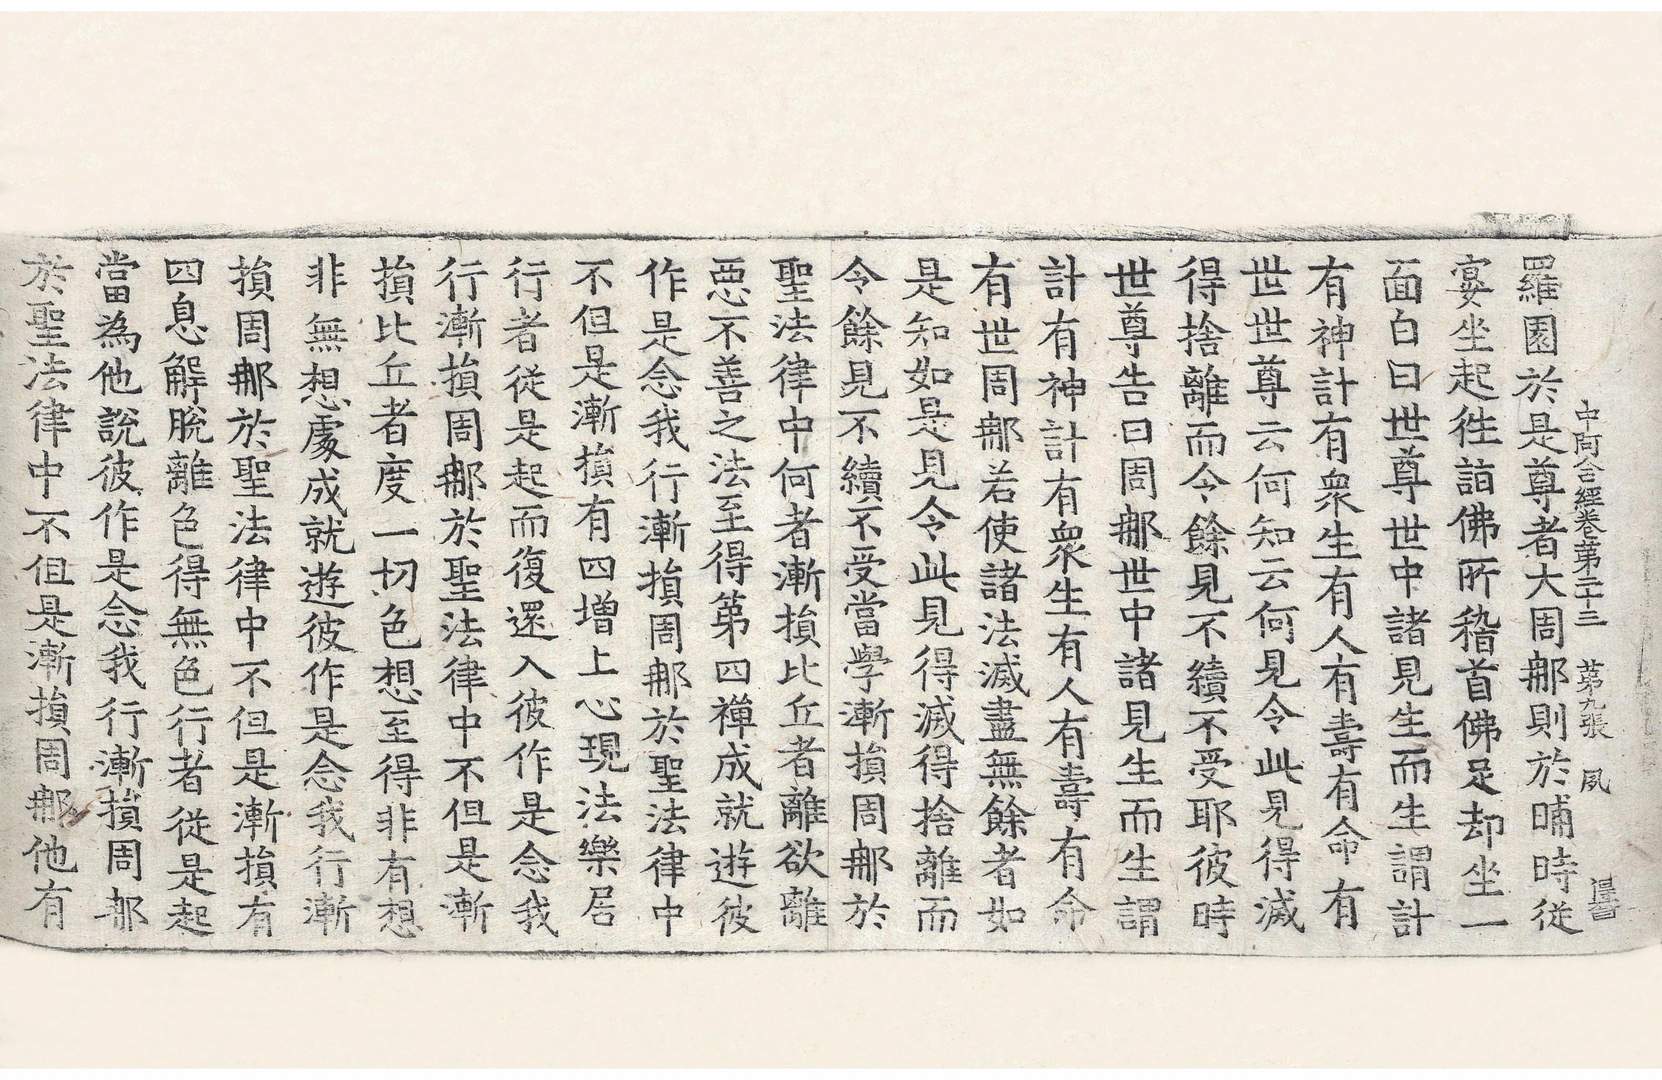 中阿含經卷第二十三 第九張 夙
羅園於是尊者大周那則於晡時從
宴坐起徃詣佛所稽首佛足却坐一
面白曰世尊世中諸見生而生謂計
有神計有衆生有人有壽有命有
世世尊云何知云何見令此見得滅
得捨離而令餘見不續不受耶彼時
世尊告曰周那世中諸見生而生謂
計有神計有衆生有人有壽有命
有世周那若使諸法滅盡無餘者如
是知如是見令此見得滅得捨離而
令餘見不續不受當學漸損周那於
聖法律中何者漸損比丘者離欲離
惡不善之法至得第四禪成就遊彼
作是念我行漸損周那於聖法律中
不但是漸損有四增上心現法樂居
行者從是起而復還入彼作是念我
行漸損周那於聖法律中不但是漸
損比丘者度一切色想至得非有想
非無想處成就遊彼作是念我行漸
損周那於聖法律中不但是漸損有
四息解脫離色得無色行者從是起
當為他說彼作是念我行漸損周那
於聖法律中不但是漸損周那他有